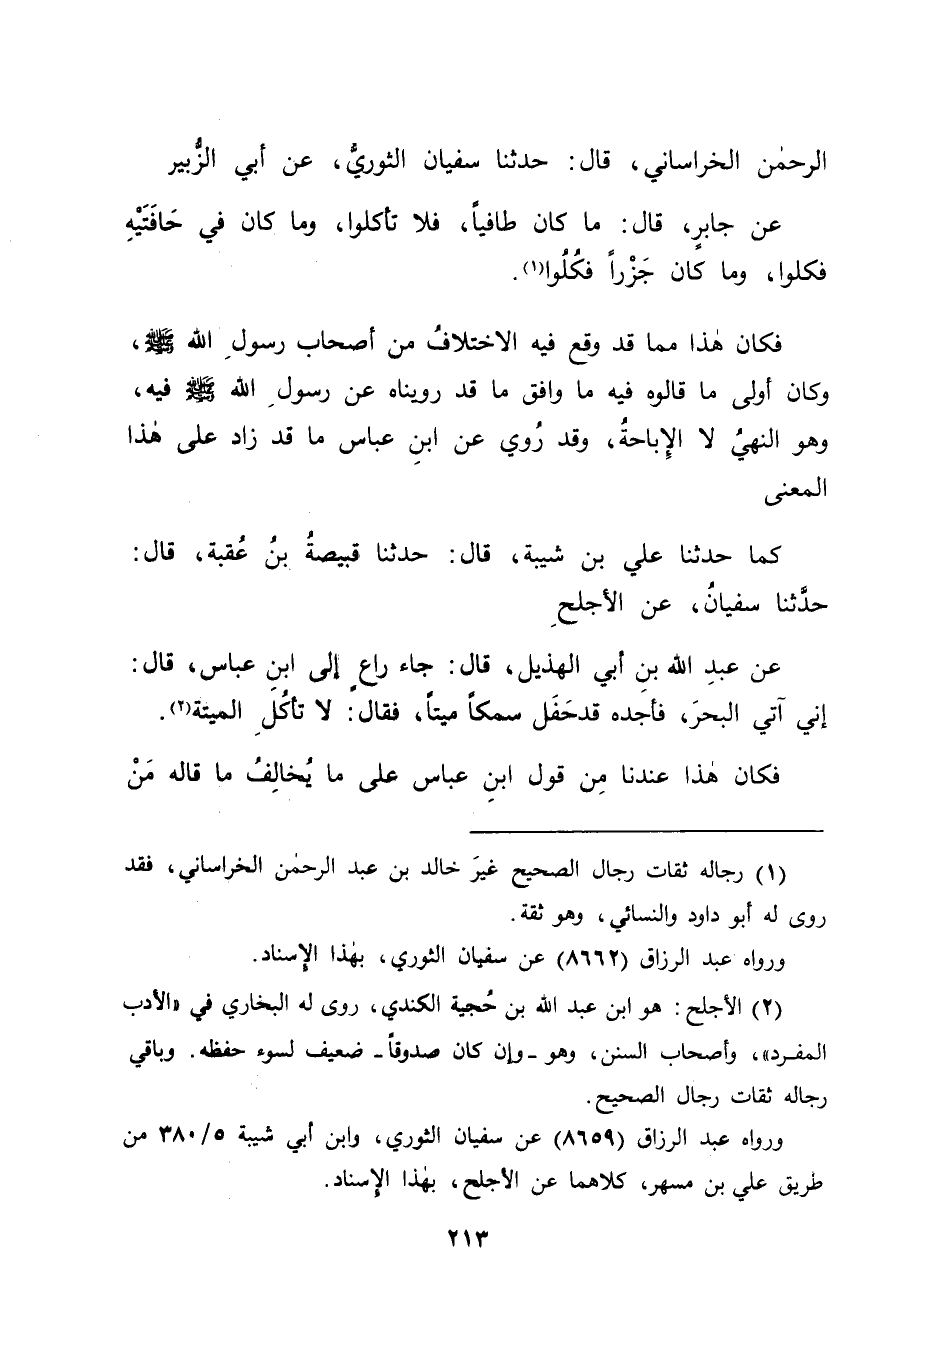 الرحمٰن الخراساني، قال: حدثنا سفيان الثوريُّ، عن أبي الزُّبير
عن جابرٍ، قال: ما كان طافياً، فلا تأكلوا، وما كان في حَافَتَيْهِ
فكلوا، وما كان جَزْراً فكُلُوا(١).
فكان هٰذا مما قد وقع فيه الاختلافُ من أصحاب رسولِ الله ﷺ،
وكان أولى ما قالوه فيه ما وافق ما قد رويناه عن رسولِ الله ﷺ فيه،
وهو النهيُ لا الإِباحةُ، وقد رُوي عن ابنِ عباس ما قد زاد على هٰذا
المعنى
كما حدثنا علي بن شيبة، قال: حدثنا قبيصةُ بنُ عُقبة، قال:
حدَّثنا سفيانُ، عن الأجلحِ
عن عبدِ الله بنِ أبي الهذيل، قال: جاء راعٍ إلى ابنِ عباس، قال:
إني آتي البحرَ، فأجده قدحَفَل سمكاً ميتاً، فقال: لا تأكُلِ الميتة(٢).
فكان هٰذا عندنا مِن قول ابنِ عباس على ما يُخالِفُ ما قاله مَنْ
(١) رجاله ثقات رجال الصحيح غيرَ خالد بن عبد الرحمٰن الخراساني، فقد
روى له أبو داود والنسائي، وهو ثقة.
ورواه عبد الرزاق (٨٦٦٢) عن سفيان الثوري، بهٰذا الإِسناد.
(٢) الأجلح: هو ابن عبد الله بن حُجية الكندي، روى له البخاري في «الأدب
المفرد»، وأصحاب السنن، وهو ـ وإن كان صدوقاً ـ ضعيف لسوء حفظه. وباقي
رجاله ثقات رجال الصحيح.
ورواه عبد الرزاق (٨٦٥٩) عن سفيان الثوري، وابن أبي شيبة ٣٨٠/٥ من
طريق علي بن مسهر، كلاهما عن الأجلح، بهٰذا الإِسناد.
٢١٣